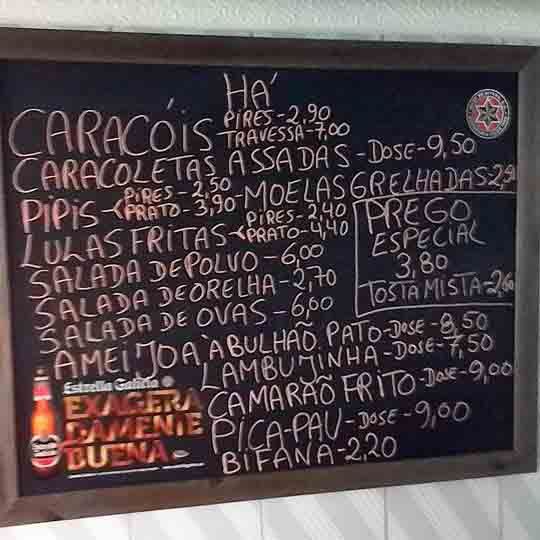 HÁ
CARACÓIS PIRES-2,90
TRAVESSA-7,00
CARACOLETAS ASSADAS-DOSE-9,50
PIPIS PIRES-2,50
PRATO-3,90
MOELAS GRELHADAS-2,90
LULAS FRITAS PIRES-2,40
PRATO-4,40
PREGO
ESPECIAL
3,80
TOSTA MISTA-2,60
SALADA DE POLVO-6,00
SALADA DE ORELHA-2,70
SALADA DE OVAS-6,00
AMEIJOA À BULHÃO PATO-DOSE-8,50
LAMBUJINHA-DOSE-7,50
CAMARÃO FRITO-DOSE-9,00
PICA-PAU-DOSE-9,00
BIFANA-2,20
Estrella Galicia
EXAGERA
DAMENTE
BUENA.